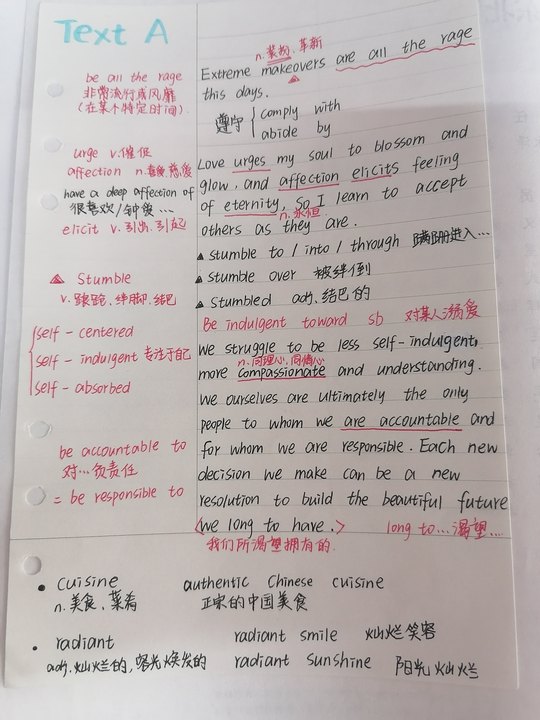 Text A
be all the rage
非常流行或风靡
(在某个特定时间)
urge v.催促
affection n.喜爱,慈爱
have a deep affection of
很喜欢/钟爱...
elicit v.引出,引起
Stumble
v.踉跄、绊脚、结巴
self-centered
self-indulgent 专注于自己
self-absorbed
be accountable to
对...负责任
= be responsible to
n.装扮、革新
Extreme makeovers are all the rage
this days.
遵守 { comply with
abide by
Love urges my soul to blossom and
glow, and affection elicits feeling
of eternity, So I learn to accept
n.永恒
others as they are.
stumble to / into / through 蹒跚进入...
stumble over 被绊倒
stumbled adj.结巴的
Be indulgent toward sb 对某人溺爱
we struggle to be less self-indulgent,
n.同理心,同情心
more compassionate and understanding.
we ourselves are ultimately the only
people to whom we are accountable and
for whom we are responsible. Each new
decision we make can be a new
resolution to build the beautiful future
<we long to have.> long to...渴望...
我们所渴望拥有的.
• cuisine authentic Chinese cuisine
n.美食、菜肴 正宗的中国美食
• radiant radiant smile 灿烂笑容
adj.灿烂的,容光焕发的 radiant sunshine 阳光灿烂